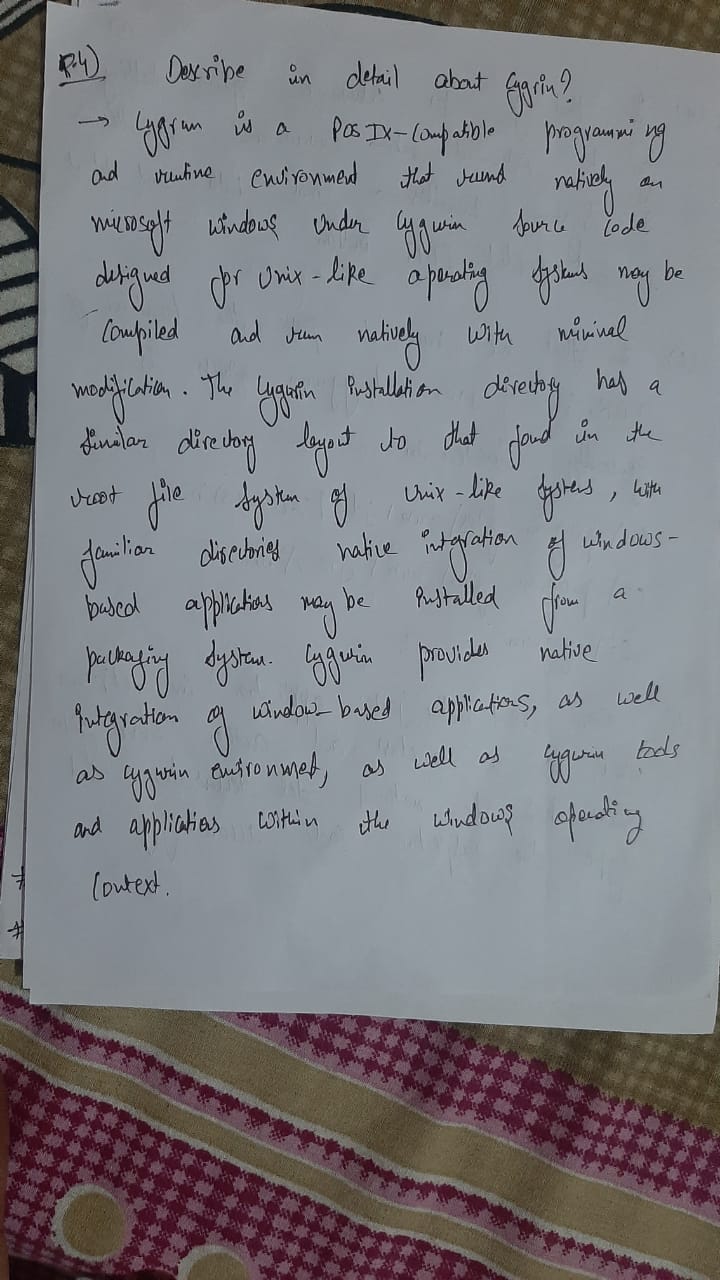 P.4) Describe in detail about Cygrin?
→ Cygrun is a POSIX-Compatible programming
and runtine environment that rund natively on
microsoft windows under Cygwin source code
designed for Unix-like operating systems may be
Compiled and run natively with minimal
modification. The Cygwin installation directory has a
similar directory layout to that found in the
root file system of Unix-like systems, with
familiar directories native intgration of windows-
based applications may be installed from a
packaging system. Cygwin provides native
integration of window-based applications, as well
as cygwin environmet, as well as cygwin tools
and applications within the windows operating
Context.